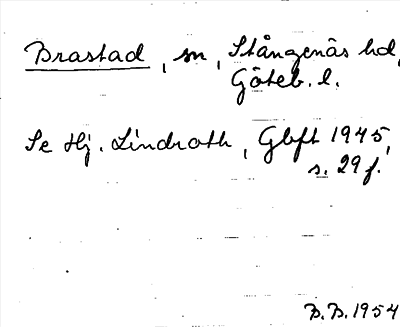 Brastad, sn, Stångenäs hd,
Göteb. l.
Se Hj. Lindroth, Gbft 1945,
s. 29 f.
B.B. 1954